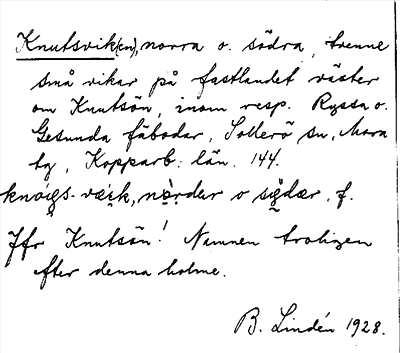 Knutsvik(en), norra o. södra, tvenne
små vikar på fastlandet väster
om Knutsön, inom resp. Ryssa o.
Gesunda fäbodar, Sollerö sn, Mora
tg, Kopparb: län. 144.
väik, o f.
Jfr Knutsön! Namnen troligen
efter denna holme.
B. Lindén 1928.